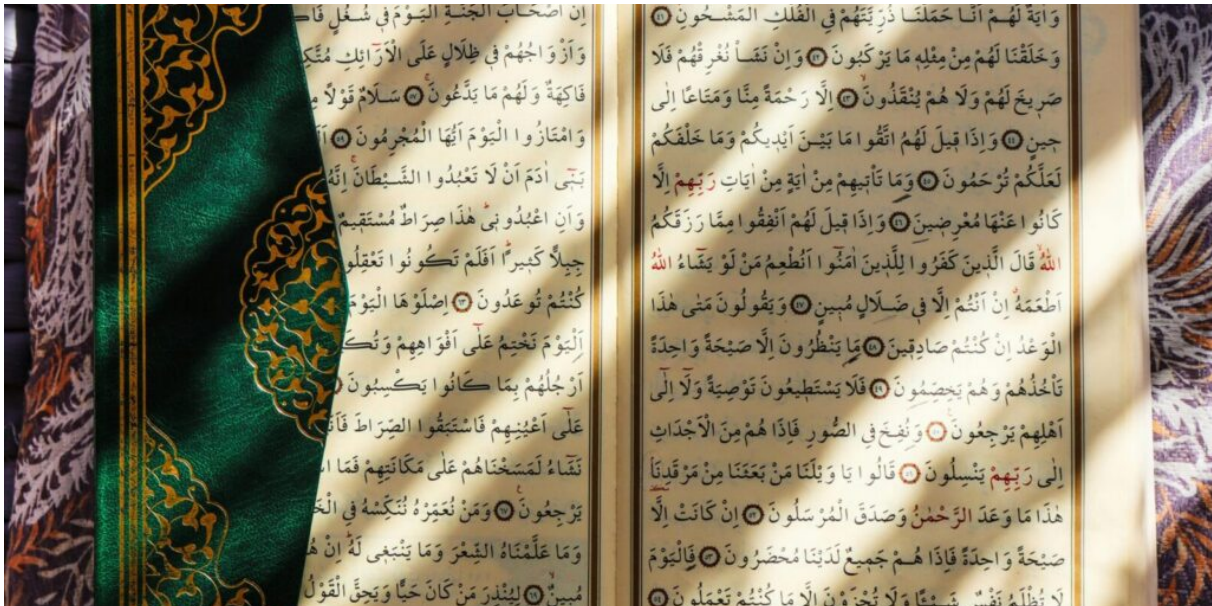 وَاٰيَةٌ لَهُمْ اَنَّا حَمَلْنَا ذُرِّيَّتَهُمْ فِي الْفُلْكِ الْمَشْحُونِ ﴿٤١﴾
وَخَلَقْنَا لَهُمْ مِنْ مِثْلِهٖ مَا يَرْكَبُونَ ﴿٤٢﴾ وَاِنْ نَشَأْ نُغْرِقْهُمْ فَلَا
صَرٖيخَ لَهُمْ وَلَا هُمْ يُنْقَذُونَ ﴿٤٣﴾ اِلَّا رَحْمَةً مِنَّا وَمَتَاعًا اِلٰى
حٖينٍ ﴿٤٤﴾ وَاِذَا قٖيلَ لَهُمُ اتَّقُوا مَا بَيْنَ اَيْدٖيكُمْ وَمَا خَلْفَكُمْ
لَعَلَّكُمْ تُرْحَمُونَ ﴿٤٥﴾ وَمَا تَأْتٖيهِمْ مِنْ اٰيَةٍ مِنْ اٰيَاتِ رَبِّهِمْ اِلَّا
كَانُوا عَنْهَا مُعْرِضٖينَ ﴿٤٦﴾ وَاِذَا قٖيلَ لَهُمْ اَنْفِقُوا مِمَّا رَزَقَكُمُ
اللّٰهُ قَالَ الَّذٖينَ كَفَرُوا لِلَّذٖينَ اٰمَنُٓوا اَنُطْعِمُ مَنْ لَوْ يَشَٓاءُ اللّٰهُ
اَطْعَمَهُ اِنْ اَنْتُمْ اِلَّا فٖي ضَلَالٍ مُبٖينٍ ﴿٤٧﴾ وَيَقُولُونَ مَتٰى هٰذَا
الْوَعْدُ اِنْ كُنْتُمْ صَادِقٖينَ ﴿٤٨﴾ مَا يَنْظُرُونَ اِلَّا صَيْحَةً وَاحِدَةً
تَأْخُذُهُمْ وَهُمْ يَخِصِّمُونَ ﴿٤٩﴾ فَلَا يَسْتَطٖيعُونَ تَوْصِيَةً وَلَٓا اِلٰٓى
اَهْلِهِمْ يَرْجِعُونَ ﴿٥٠﴾ وَنُفِخَ فِي الصُّورِ فَاِذَا هُمْ مِنَ الْاَجْدَاثِ
اِلٰى رَبِّهِمْ يَنْسِلُونَ ﴿٥١﴾ قَالُوا يَا وَيْلَنَا مَنْ بَعَثَنَا مِنْ مَرْقَدِنَا
هٰذَا مَا وَعَدَ الرَّحْمٰنُ وَصَدَقَ الْمُرْسَلُونَ ﴿٥٢﴾ اِنْ كَانَتْ اِلَّا
صَيْحَةً وَاحِدَةً فَاِذَا هُمْ جَمٖيعٌ لَدَيْنَا مُحْضَرُونَ ﴿٥٣﴾ فَالْيَوْمَ
لَا تُظْلَمُ نَفْسٌ شَيْـًٔا وَلَا تُجْزَوْنَ اِلَّا مَا كُنْتُمْ تَعْمَلُونَ ﴿٥٤﴾
اِنَّ اَصْحَابَ الْجَنَّةِ الْيَوْمَ فٖي شُغُلٍ
وَاَزْوَاجُهُمْ فٖي ظِلَالٍ عَلَى الْاَرَٓائِكِ
فَاكِهَةٌ وَلَهُمْ مَا يَدَّعُونَ ﴿٥٧﴾ سَلَامٌ قَوْلًا
وَامْتَازُوا الْيَوْمَ اَيُّهَا الْمُجْرِمُونَ ﴿٥٩﴾
بَنٖٓي اٰدَمَ اَنْ لَا تَعْبُدُوا الشَّيْطَانَ اِنَّهُ
وَاَنِ اعْبُدُونٖي هٰذَا صِرَاطٌ مُسْتَقٖيمٌ
جِبِلًّا كَثٖيرًا اَفَلَمْ تَكُونُوا
كُنْتُمْ تُوعَدُونَ ﴿٦٣﴾ اِصْلَوْهَا الْيَوْمَ
اَلْيَوْمَ نَخْتِمُ عَلٰٓى اَفْوَاهِهِمْ
اَرْجُلُهُمْ بِمَا كَانُوا يَكْسِبُونَ
عَلٰٓى اَعْيُنِهِمْ فَاسْتَبَقُوا الصِّرَاطَ
نَشَٓاءُ لَمَسَخْنَاهُمْ عَلٰى مَكَانَتِهِمْ فَمَا
يَرْجِعُونَ ﴿٦٧﴾ وَمَنْ نُعَمِّرْهُ نُنَكِّسْهُ فِي
وَمَا عَلَّمْنَاهُ الشِّعْرَ وَمَا يَنْبَغٖي لَهُ اِنْ
مُبٖينٌ ﴿٦٩﴾ لِيُنْذِرَ مَنْ كَانَ حَيًّا وَيَحِقَّ الْقَوْلُ